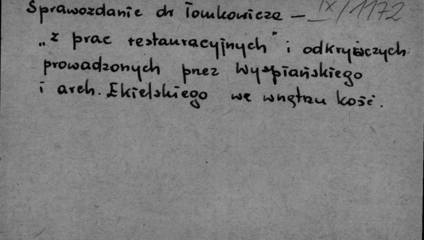 Sprawozdanie dr Tomkowicza – IX/1172
„z prac restauracyjnych" i odkrywczych
prowadzonych przez Wyspiańskiego
i arch. Ekielskiego we wnętrzu kość.